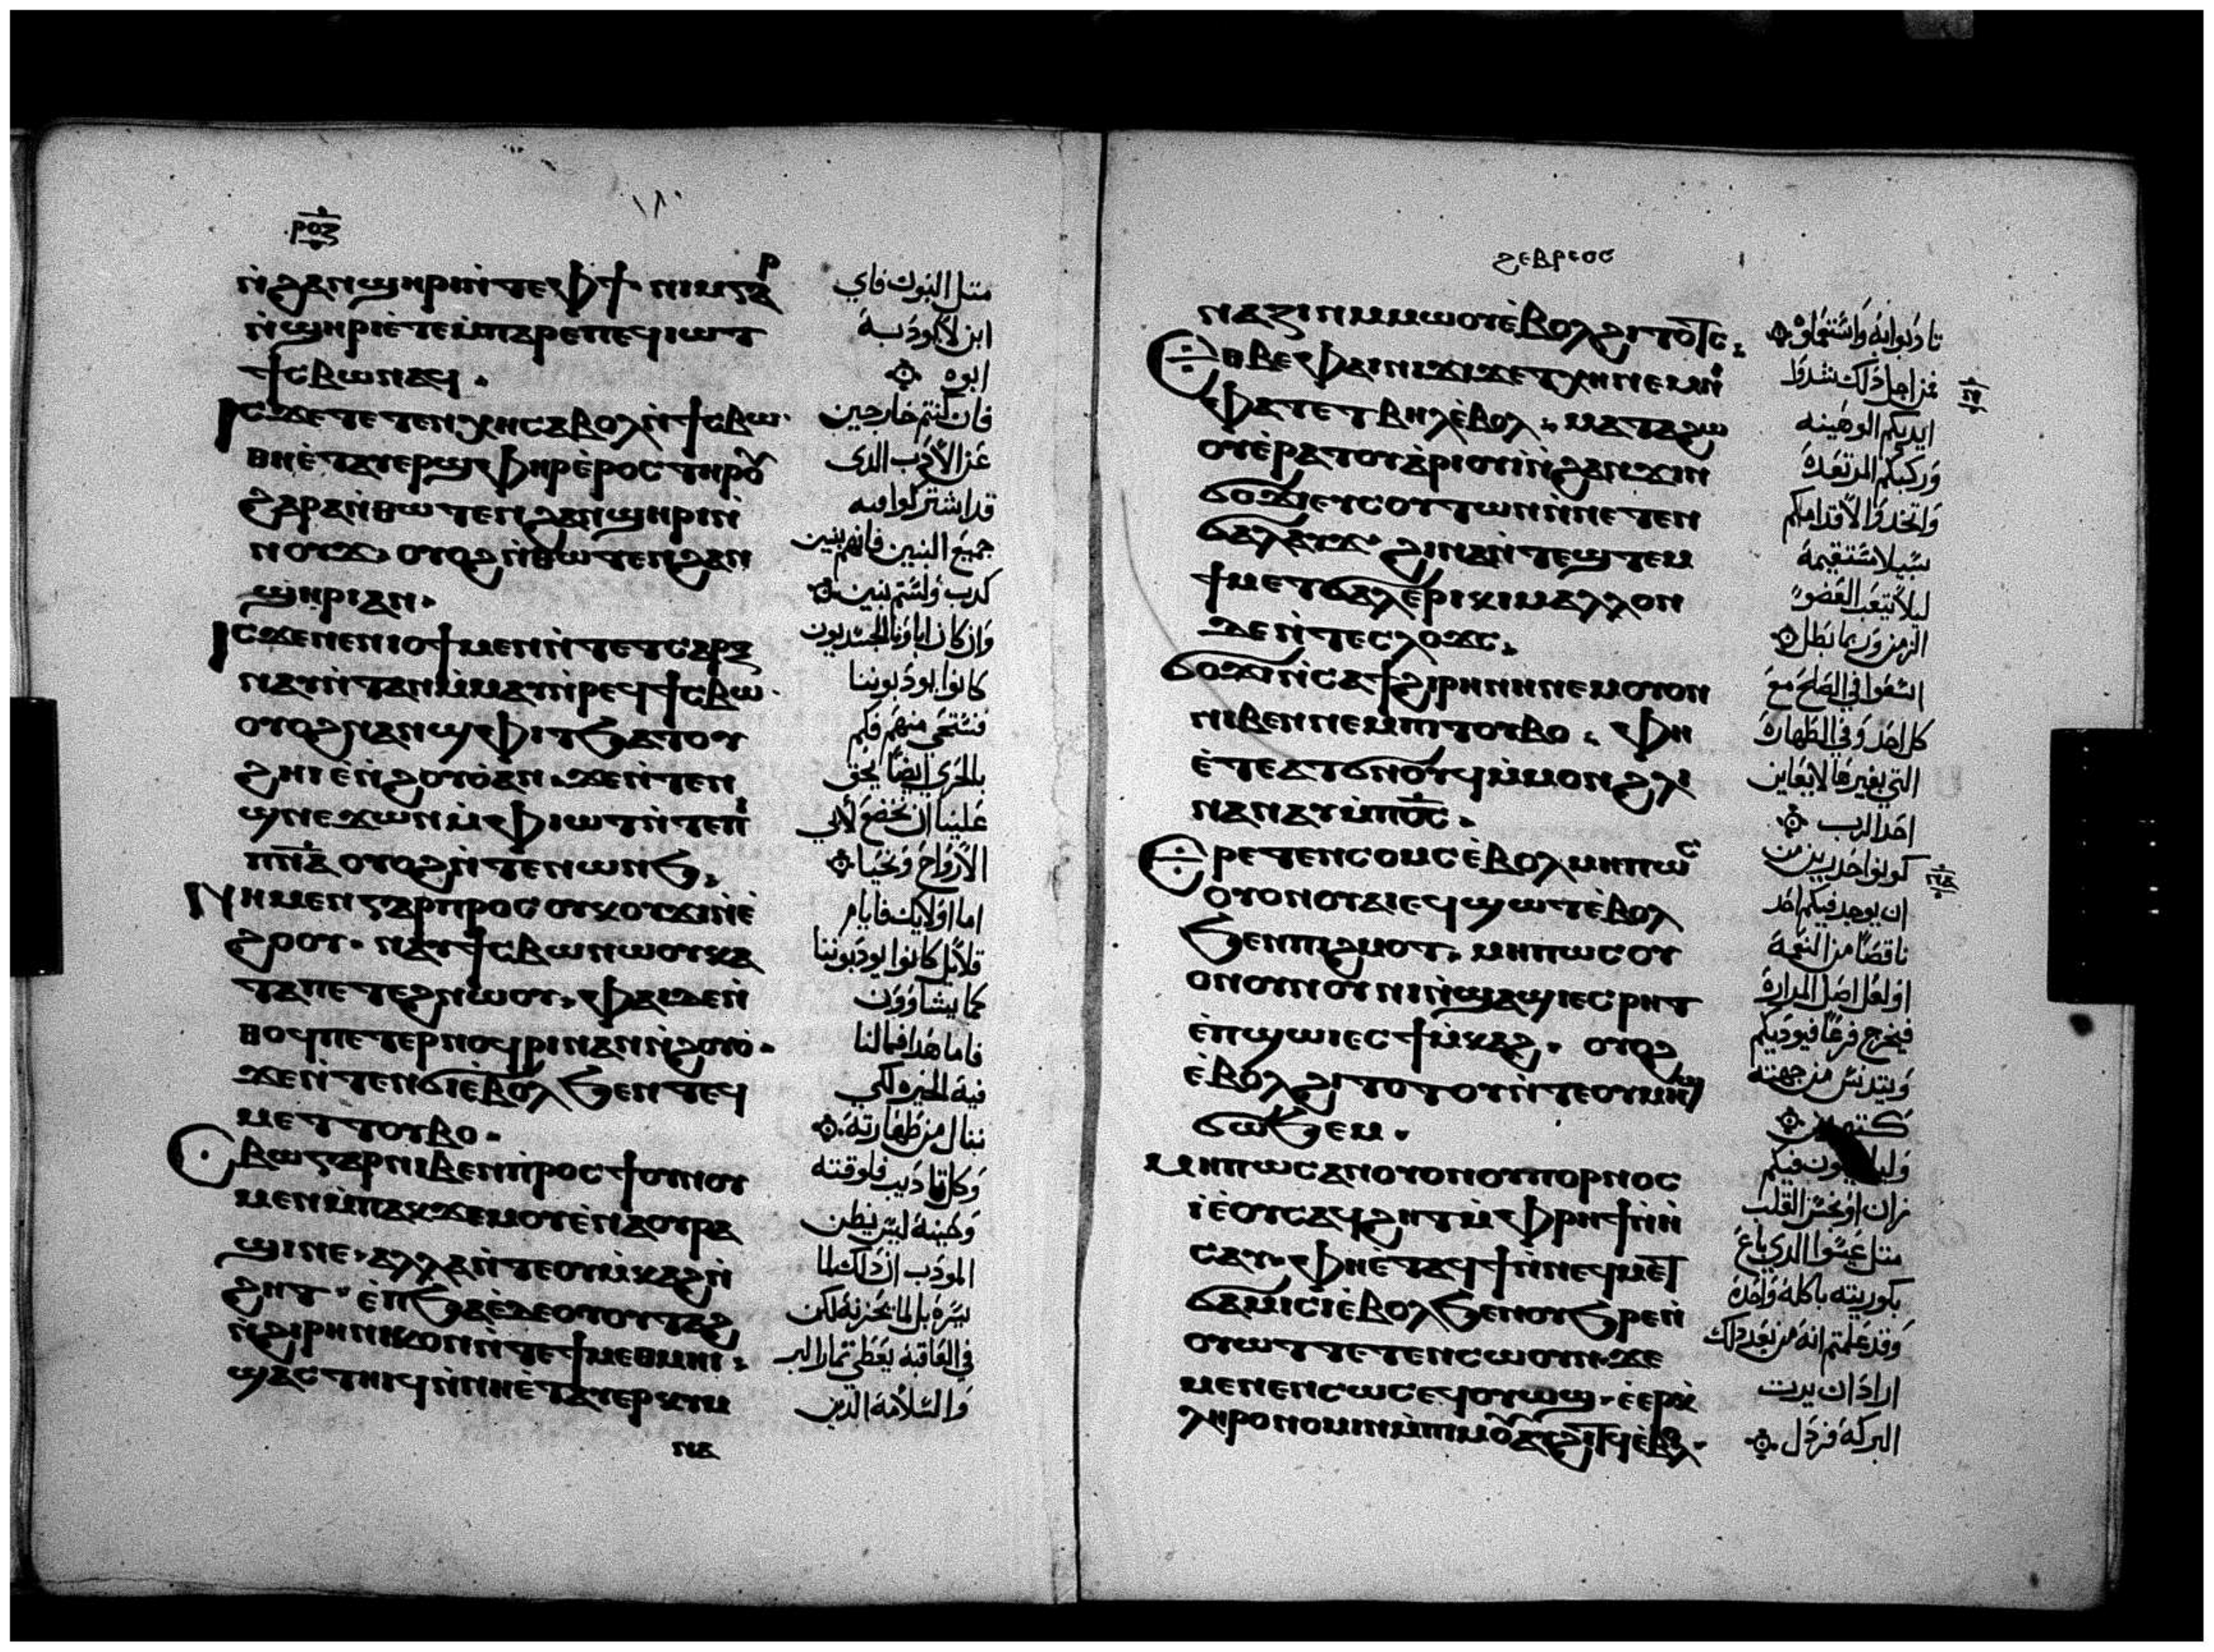 ⲣⲟⲍ
ⲛ̀ϩⲁⲛϣⲏⲣⲓⲛ̀ⲧⲉⲫϯ· ⲛⲓⲙⲅⲁⲣ
ⲛ̀ϣⲏⲣⲓⲉ̀ⲧⲉⲙ̀ⲡⲁⲣⲉⲡⲉϥⲓⲱⲧ
ϯⲥⲃⲱⲛⲁϥ·
ⲓⲥϫⲉⲧⲉⲧⲉⲛⲭⲏⲥⲁⲃⲟⲗⲛ̀ϯⲥⲃⲱ·
ⲑⲏⲉ̀ⲧⲁⲩⲉⲣϣⲫⲏⲣⲉ̀ⲣⲟⲥⲧⲏⲣⲟⲩ
ϩⲁⲣⲁⲛ̀ⲑⲱⲧⲉⲛϩⲁⲛϣⲏⲣⲓⲛ̀
ⲛⲟⲩϫ· ⲟⲩⲟϩⲛ̀ⲑⲱⲧⲉⲛϩⲁⲛ
ϣⲏⲣⲓⲁⲛ·
ⲓⲥϫⲉⲛⲉⲛⲓⲟϯⲙⲉⲛⲛ̀ⲧⲉⲧⲥⲁⲣⲝ
ⲛⲁⲩⲛ̀ⲧⲁⲛⲙ̀ⲙⲁⲩⲛ̀ⲣⲉϥϯⲥⲃⲱ·
ⲟⲩⲟϩⲛⲁⲛϣⲫⲓⲧϧⲁⲧⲟⲩ
ϩⲏⲓⲉ̀ⲛ̀ϩⲟⲩⲟ̀ⲁⲛ·ϫⲉⲛ̀ⲧⲉⲛ
ϣⲛⲉϫⲱⲛⲙ̀ⲫⲓⲱⲧⲛ̀ⲧⲉⲛⲓ̀
ⲡⲛ̅ⲁ̅ ⲟⲩⲟϩⲛ̀ⲧⲉⲛⲱⲛϧ·
ⲛⲏⲙⲉⲛⲅⲁⲣⲡⲣⲟⲥⲟⲩⲕⲟⲩϫⲓⲛ̀ⲉ̀
ϩⲟⲟⲩ· ⲛⲁⲩϯⲥⲃⲱⲛⲱⲟⲩⲕⲁ
ⲧⲁⲡⲉⲧⲉϩⲛⲱⲟⲩ· ⲫⲁⲓⲇⲉⲛ̀
ⲑⲟϥⲡⲉⲧⲉⲣⲛⲟϥⲣⲓⲛⲁⲛⲛ̀ϩⲟⲩⲟ̀·
ϫⲉⲛ̀ⲧⲉⲛϭⲓⲉ̀ⲃⲟⲗϧⲉⲛⲧⲉϥ
ⲙⲉⲧⲧⲟⲩⲃⲟ·
ⲥⲃⲱⲅⲁⲣⲛⲓⲃⲉⲛⲡ̀ⲣⲟⲥϯⲟⲩⲛⲟⲩ
ⲙⲉⲛⲙ̀ⲡⲁⲕϫⲉⲙⲟⲩⲉ̀ⲛⲁⲟⲩⲣⲁ
ϣⲓⲛⲉ·ⲁⲗⲗⲁⲛ̀ⲧⲉⲟⲩⲙ̀ⲕⲁϩⲛ̀
ϩⲏⲧ· ⲉ̀ⲡϧⲁⲉ̀ⲇⲉⲟⲩⲟⲩⲧⲁϩ
ⲛ̀ϩⲓⲣⲏⲛⲓⲕⲟⲛⲛ̀ⲧⲉϯⲙⲉⲑⲙⲏⲓ·
ϣⲁⲥⲧⲏⲓϥⲛ̀ⲛⲏⲉ̀ⲧⲁⲩⲉⲣⲕⲩⲙ
ⲛⲁ
متل البنوك فاي
ابن لا يودبه
ابوه
فان كنتم خارجين
عن الادب الدى
قد اشتركوا فيه
جميع البنين فانهم بنين
كدب ولستم بنين
وان كان اباونا الجسديون
كانوا يودبوننا
فنستحى منهم فكم
بالحري ايضا يحق
علينا ان نخضع لابي
الارواح ونحيا
اما اولايك فايام
قلايل كانوا يودبوننا
كما يشاوون
فاما هدا فمالنا
فيه الخيره لكي
ننال من طهارته
وكل تاديب فلوقته
وحينه ليس يظن
المودب ان دلك لما
يسره بل لما يحزنه لكن
في العاقبه يعطى تمار البر
والسلامه الدين
ϩⲉⲃⲣⲉⲟⲥ
ⲛⲁⲍⲓⲛⲙⲙⲱⲟⲩⲉ̀ⲃⲟⲗϩⲓⲧⲟⲧⲥ·
ⲉⲑⲃⲉⲫⲁⲓⲛⲓϫⲓϫⲉⲧⲭⲏⲛⲉⲙⲛⲓ
ⲫⲁⲧⲉⲧⲃⲏⲗⲉ̀ⲃⲟⲗ· ⲙⲁⲧⲁϩⲱ
ⲟⲩⲉ̀ⲣⲁⲧⲟⲩⲁ̀ⲣⲓⲟⲩⲓⲛ̀ϩⲁⲛϫⲓⲛ
ϭⲟϫⲓⲉⲩⲥⲟⲩⲧⲱⲛⲛ̀ⲛⲉⲧⲉⲛ
ϭⲁⲗⲁⲩϫ· ϩⲓⲛⲁⲛ̀ⲧⲉϣⲧⲉⲙ
ϯⲙⲉⲧϭⲁⲗⲉ̀ⲣⲓⲕⲓⲙⲁⲗⲗⲟⲛ
ⲇⲉⲛ̀ⲧⲉⲥⲗⲟϫⲥ·
ϭⲟϫⲓⲛ̀ⲥⲁϯϩⲓⲣⲏⲛⲏⲛⲉⲙⲟⲩⲟⲛ
ⲛⲓⲃⲉⲛⲛⲉⲙⲡⲧⲟⲩⲃⲟ· ⲫⲏ
ⲉ̀ⲧⲉⲁⲧϭⲛⲟⲩϥⲙ̀ⲙⲟⲛϩⲗⲓ
ⲛⲁⲛⲁⲩⲙ̀ⲡⲟ̅ⲥ̅·
ⲉⲣⲉⲧⲉⲛⲥⲟⲙⲥⲉ̀ⲃⲟⲗⲙⲏⲡⲱⲥ
ⲟⲩⲟⲛⲟⲩⲁⲓⲉϥϣⲱⲧⲉ̀ⲃⲟⲗ
ϧⲉⲛⲡⲓϩⲙⲟⲧ· ⲙⲏⲡⲱⲥⲟⲩ
ⲟⲛⲟⲩⲛⲟⲩⲛⲓⲛ̀ϣⲁϣⲓⲉⲥⲣⲏⲧ
ⲉ̀ⲡϣⲱⲓⲉⲥϯⲙ̀ⲕⲁϩ· ⲟⲩⲟϩ
ⲉ̀ⲃⲟⲗϩⲓⲧⲟⲧⲟⲩⲛ̀ⲧⲉⲟⲩⲙⲏϣ
ϭⲱϧⲉⲙ·
ⲙⲏⲡⲱⲥⲁⲛⲟⲩⲟⲛⲟⲩⲡⲟⲣⲛⲟⲥ
ⲓⲉ̀ⲟⲩⲥⲁϥϩⲏⲧⲙ̀ⲫⲣⲏϯⲛ̀ⲏ̀
ⲥⲁⲩ·ⲫⲏⲉ̀ⲧⲁϥϯⲛ̀ⲛⲉϥⲙⲉⲧ
ϭⲁⲙⲓⲥⲓⲉ̀ⲃⲟⲗϧⲉⲛⲟⲩϧⲣⲉⲛ̀
ⲟⲩⲱⲧⲧⲉⲧⲉⲛⲥⲱⲟⲩⲛ·ϫⲉ
ⲙⲉⲛⲉⲛⲥⲱⲥⲉϥⲟⲩⲱϣ·ⲉ̀ⲉⲣⲕ̀
ⲗⲏⲣⲟⲛⲟⲙⲓⲛⲙ̀ⲡⲓⲥⲙⲟⲩⲁⲩϩⲓⲧϥⲉ̀ⲃⲟⲗ·
تادبوا به واستنماوه
ⲛ
فمن اجل دلك شددوا
ايديكم الوهينه
وركبكم المرتعده
واتخدوا لاقدامكم
سبيلا مستقيمه
ليلا يتعب العضو
الزمن وربما بطل
اسعوا في الصلح مع
كل احد وفي الطهاره
التي بغيرها لا يعاين
احد الرب
ⲛⲁ
كونوا حدرين من
ان يوجد فيكم احد
ناقصا من النعمه
او لعل اصل المراره
فيخرج فرعا فيوديكم
ويتدنس من جهته
فيكم
زان او نجس القلب
متل عيسوا الدي باع
بكوريته باكله واحده
وقد علمتم انه من بعد دلك
اراد ان يرت
البركه فردل